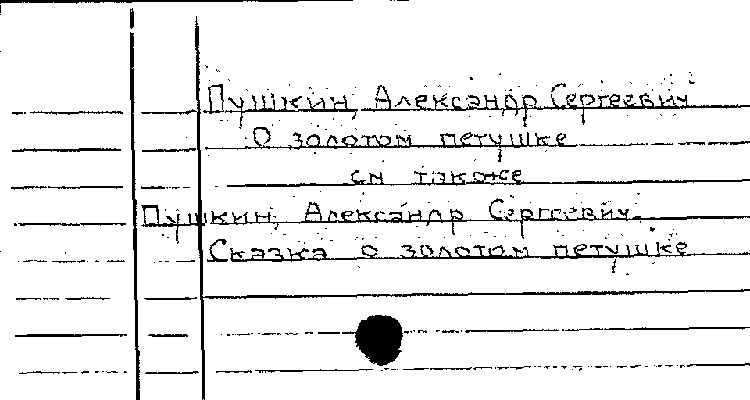 Пушкин, Александр Сергеевич
О золотом петушке
см также
Пушкин, Александр Сергеевич.
Сказка о золотом петушке